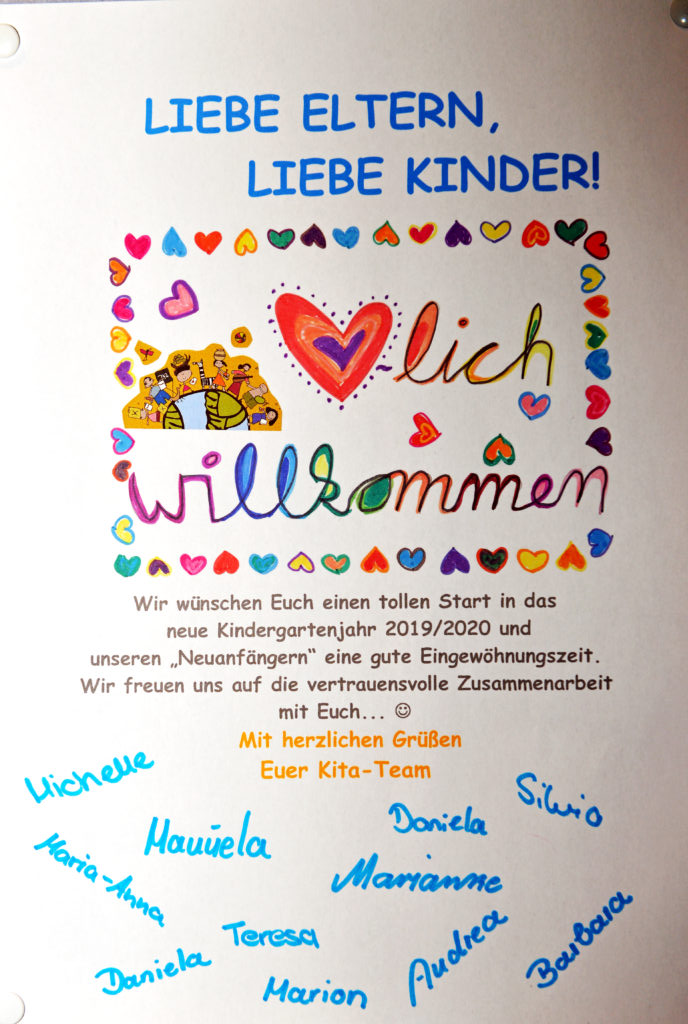 LIEBE ELTERN,
LIEBE KINDER!
lich
willkommen
Wir wünschen Euch einen tollen Start in das
neue Kindergartenjahr 2019/2020 und
unseren „Neuanfängern“ eine gute Eingewöhnungszeit.
Wir freuen uns auf die vertrauensvolle Zusammenarbeit
mit Euch... ☺
Mit herzlichen Grüßen
Euer Kita-Team
Michelle
Silvio
Daniela
Manuela
Maria-Anna
Marianne
Teresa
Andrea
Barbara
Daniela
Marion